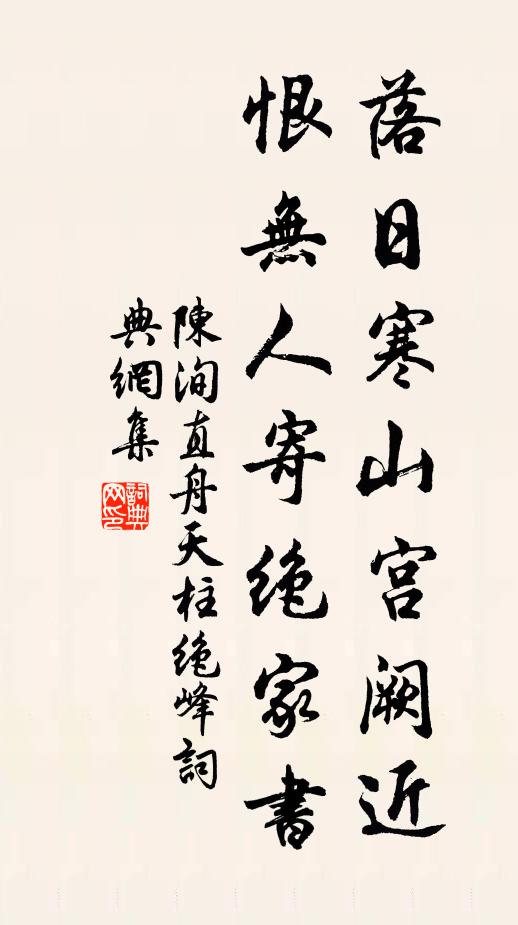 落日寒山宫阙近
恨無人寄绝家書
陳洵直舟天柱绝峰詞
典網集
詞典
网印